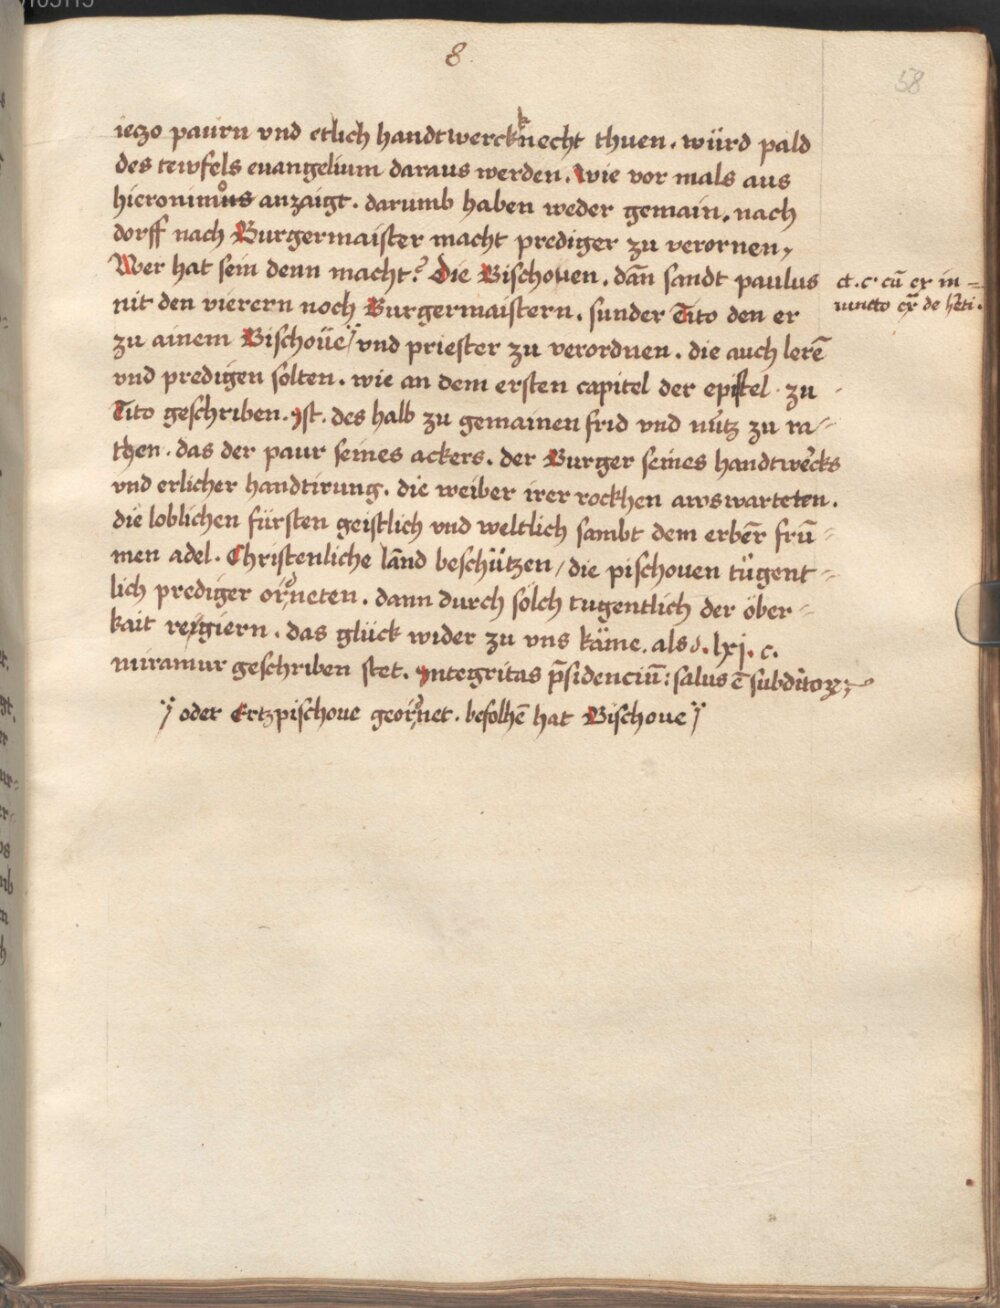 8
58
iezo paurn vnd etlich handtwerckknecht thuen. würd pald
des tewfels euangelium daraus werden. wie vor mals aus
hieronimůs anzaigt. darumb haben weder gemain, nach
dorff nach Burgermaister macht prediger zu verornen,
Wer hat sein denn macht? Die Bischouen. dañ sandt paulus
ct. c. cū ex in=
iuncto ex̄ de heti.
nit den vierern noch Burgermaistern. sunder Tito den er
zu ainem Bischoue ẏ vnd priester zu verordnen. die auch lerē
vnd predigen solten. wie an dem ersten capitel der epistel zu
Tito geschriben. Jst. des halb zu gemainen frid vnd nutz zu ra=
then. das der paur seines ackers. der Burger seines handtwercks
vnd erlicher handtirung. die weiber irer rockhen awswarteten.
die loblichen fürsten geistlich vnd weltlich sambt dem erber̄ frū=
men adel. Christenliche lannd beschützen, die pischouen tugent=
lich prediger orneten. dann durch sölch tugentlich der öber=
kait regiern. das glück wider zu vns käme. als d. lxj. c.
miramur geschriben stet. Jntegritas p̄sidenciū: salus ē subditoꝝ
ẏ oder Ertzpischoue geornet. befolhē hat Bischoue ẏ